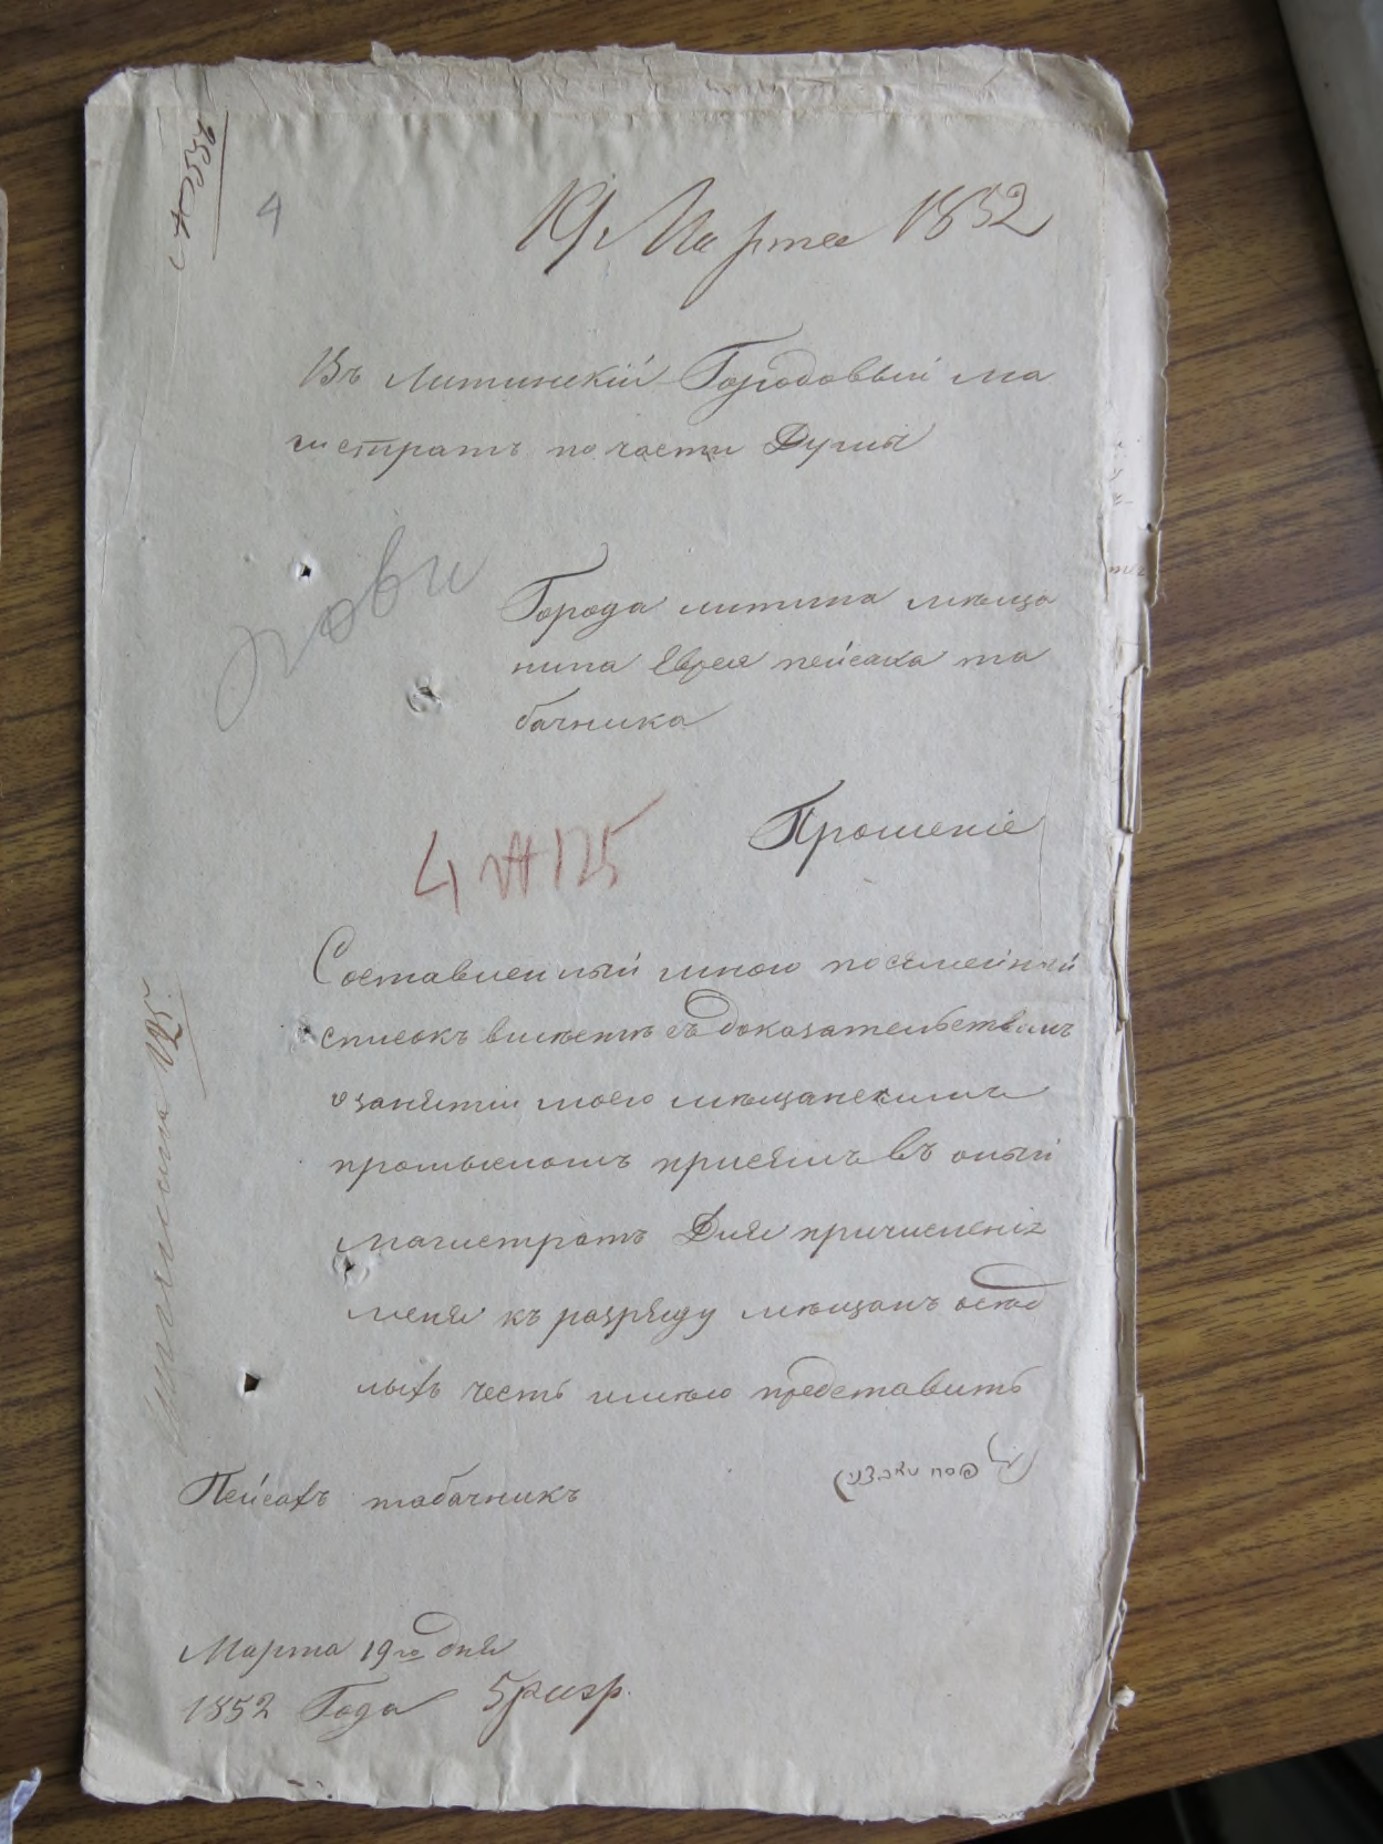 № 556
4
19 Марта 1852
Въ Литинскій Городовый ма
гистратъ по части Думы
Города литина мѣща
нина Еврея пейсаха та
бачника
Прошеніе
4 № 125
Составленный мною посемейный
списокъ вмѣстѣ съ доказательствамъ
о занятіи моего мѣщанскимъ
промысломъ при семъ въ оный
магистратъ Для причисленія
меня къ разряду мѣщанъ осѣд
лыхъ честь имѣю представить
פסח
Пейсахъ табачникъ
Марта 19го дня
1852 Года 5 разр.
125